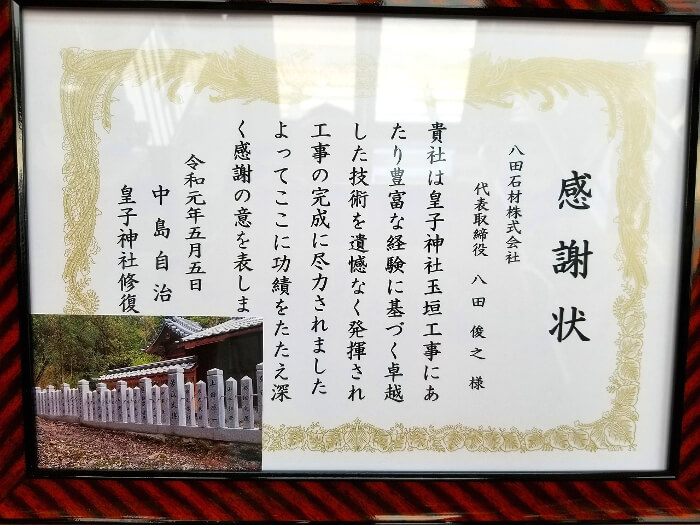 感謝状
八田石材株式会社
代表取締役 八田俊之様
貴社は皇子神社玉垣工事にあ
たり豊富な経験に基づく卓越
した技術を遺憾なく発揮され
工事の完成に尽力されました
よってここに功績をたたえ深
く感謝の意を表しま
令和元年五月五日
中島自治
皇子神社修復